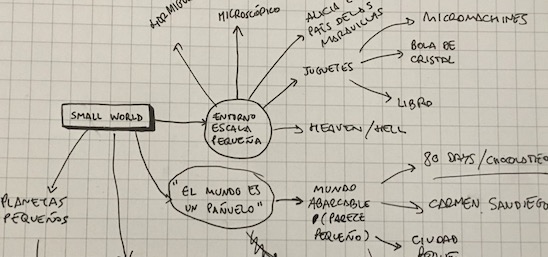 MICROSCÓPICO
PAÍS DE LAS
MARAVILLAS
MICROMACHINES
JUGUETES
BOLA DE
CRISTAL
LIBRO
SMALL WORLD
ENTORNO
ESCALA
PEQUEÑA
HEAVEN/HELL
"EL MUNDO ES
UN PAÑUELO"
MUNDO
ABARCABLE
(PARECE
PEQUEÑO)
80 DAYS/CHOCOLATE
CARMEN SANDIEGO
CIUDAD
PLANETAS
PEQUEÑOS